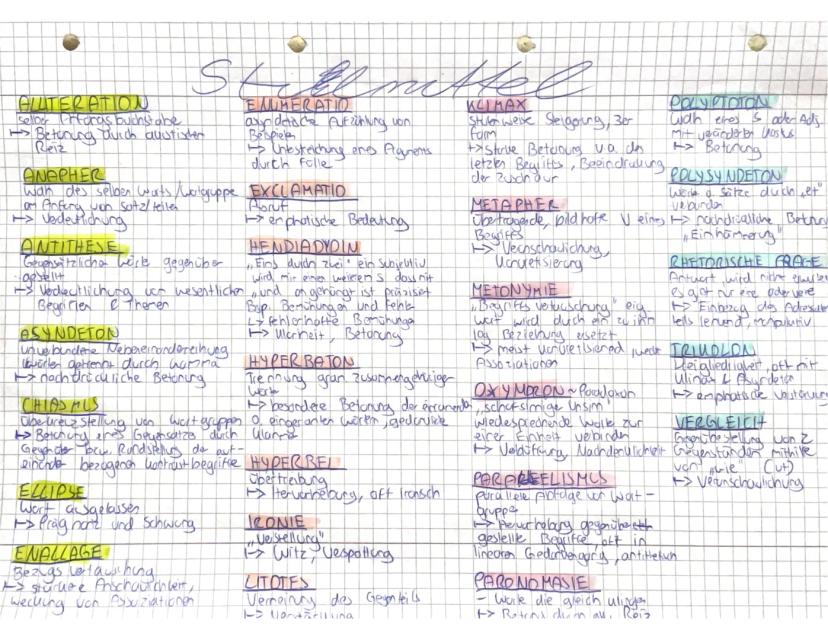 Stilmittel
ALLITERATION
selber Anfangsbuchstabe
↦ Betonung durch akustischen
Reiz
ANAPHER
Wdh des selben Worts/Wortgruppe
am Anfang von Satz/teilen
↦ Verdeutlichung
ANTITHESE
Gegensätzliche Worte gegenüber
gestellt
↦ Verdeutlichung von wesentlichen
Begriffen & Themen
ASYNDETON
unverbundene Nebeneinanderreihung
Wörter getrennt durch Komma
↦ nachdrückliche Betonung
CHIASMUS
Überkreuzstellung von Wortgruppen
↦ Betonung eines Gegensatzes durch
Gegenüber bzw. Rundstellung der auf-
einander bezogenen Kontrastbegriffe
ELLIPSE
Wort ausgelassen
↦ Prägnanz und Schwung
ENALLAGE
Bezugsvertauschung
↦ stärkere Anschaulichkeit,
weckung von Assoziationen
ENUMERATIO
asyndetische Aufzählung von
Beispielen
↦ Unterstreichung eines Arguments
durch Fülle
EXCLAMATIO
Ausruf
↦ emphatische Bedeutung
HENDIADYOIN
„Eins durch zwei" ein Subjektiv
wird mir eines weiteren S das mit
„und" angehängt ist präzisiert
Bsp. Bemühungen und Fehler
↳ fehlerhafte Bemühungen
↦ Klarheit, Betonung
HYPERBATON
Trennung gram. zusammengehöriger
Worte
↦ besondere Betonung der
o. eingerahmten Wörter, gedankliche
Klammer
HYPERBEL
Übertreibung
↦ Hervorhebung, oft ironisch
IRONIE
„Verstellung"
↦ Witz, Verspottung
LITOTES
Verneinung des Gegenteils
↦ Verstärkung
KLIMAX
Stufenweise Steigerung, 3er
Form
↦ starke Betonung v.a. des
letzten Begriffs, Beeindruckung
der Zuschauer
METAPHER
Übertragende, bildhafte V eines
Begriffs
↦ Veranschaulichung,
Konkretisierung
METONYMIE
„Begriffsvertauschung" eig
Wort wird durch ein zu ihm
log Beziehung ersetzt
↦ meist konkretisierend, weckt
Assoziationen
OXYMORON ~ Paradoxon
„scharfsinniger Unsinn"
wiedersprechende Worte zur
einer Einheit verbinden
↦ Verblüffung, Nachdenklichkeit
PARALLELISMUS
parallele Abfolge von Wort-
gruppe
↦ Hervorhebung gegenüber
gestellte Begriffe, oft in
linearen Gedankengang, antithetisch
PARONOMASIE
- Worte die gleich klingen
↦ Betonung durch aku. Reiz
POLYPTOTON
Wdh eines S oder Adj
mit veränderten Kasus
↦ Betonung
POLYSYNDETON
Worte o Sätze durch „et"
verbunden
↦ nachdrückliche Betonung
„Einhämmerung"
RHETORISCHE FRAGE
Antwort wird nicht erwartet
es gibt nur eine oder viele
↦ Einbezug des Adressaten
teils lenkend, manipulativ
TRIKOLON
Dreigliedrigkeit, oft mit
Klimax & Asyndeton
↦ emphatische Verstärkung
VERGLEICH
Gegenüberstellung von 2
Gegenständen mithilfe
von „wie" (ut)
↦ Veranschaulichung